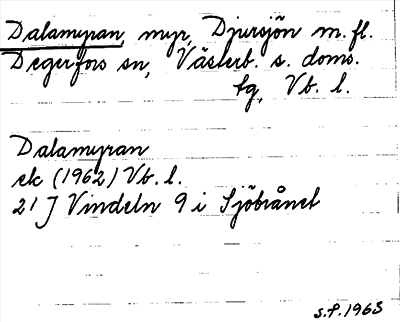 Dalamyran, myr, Djursjön m.fl.
Degerfors sn, Västerb. s. doms.
tg, Vb. l.
Dalamyran
ek (1962) Vb. l.
21 J Vindeln 9 i Sjöbrånet
S.P. 1963